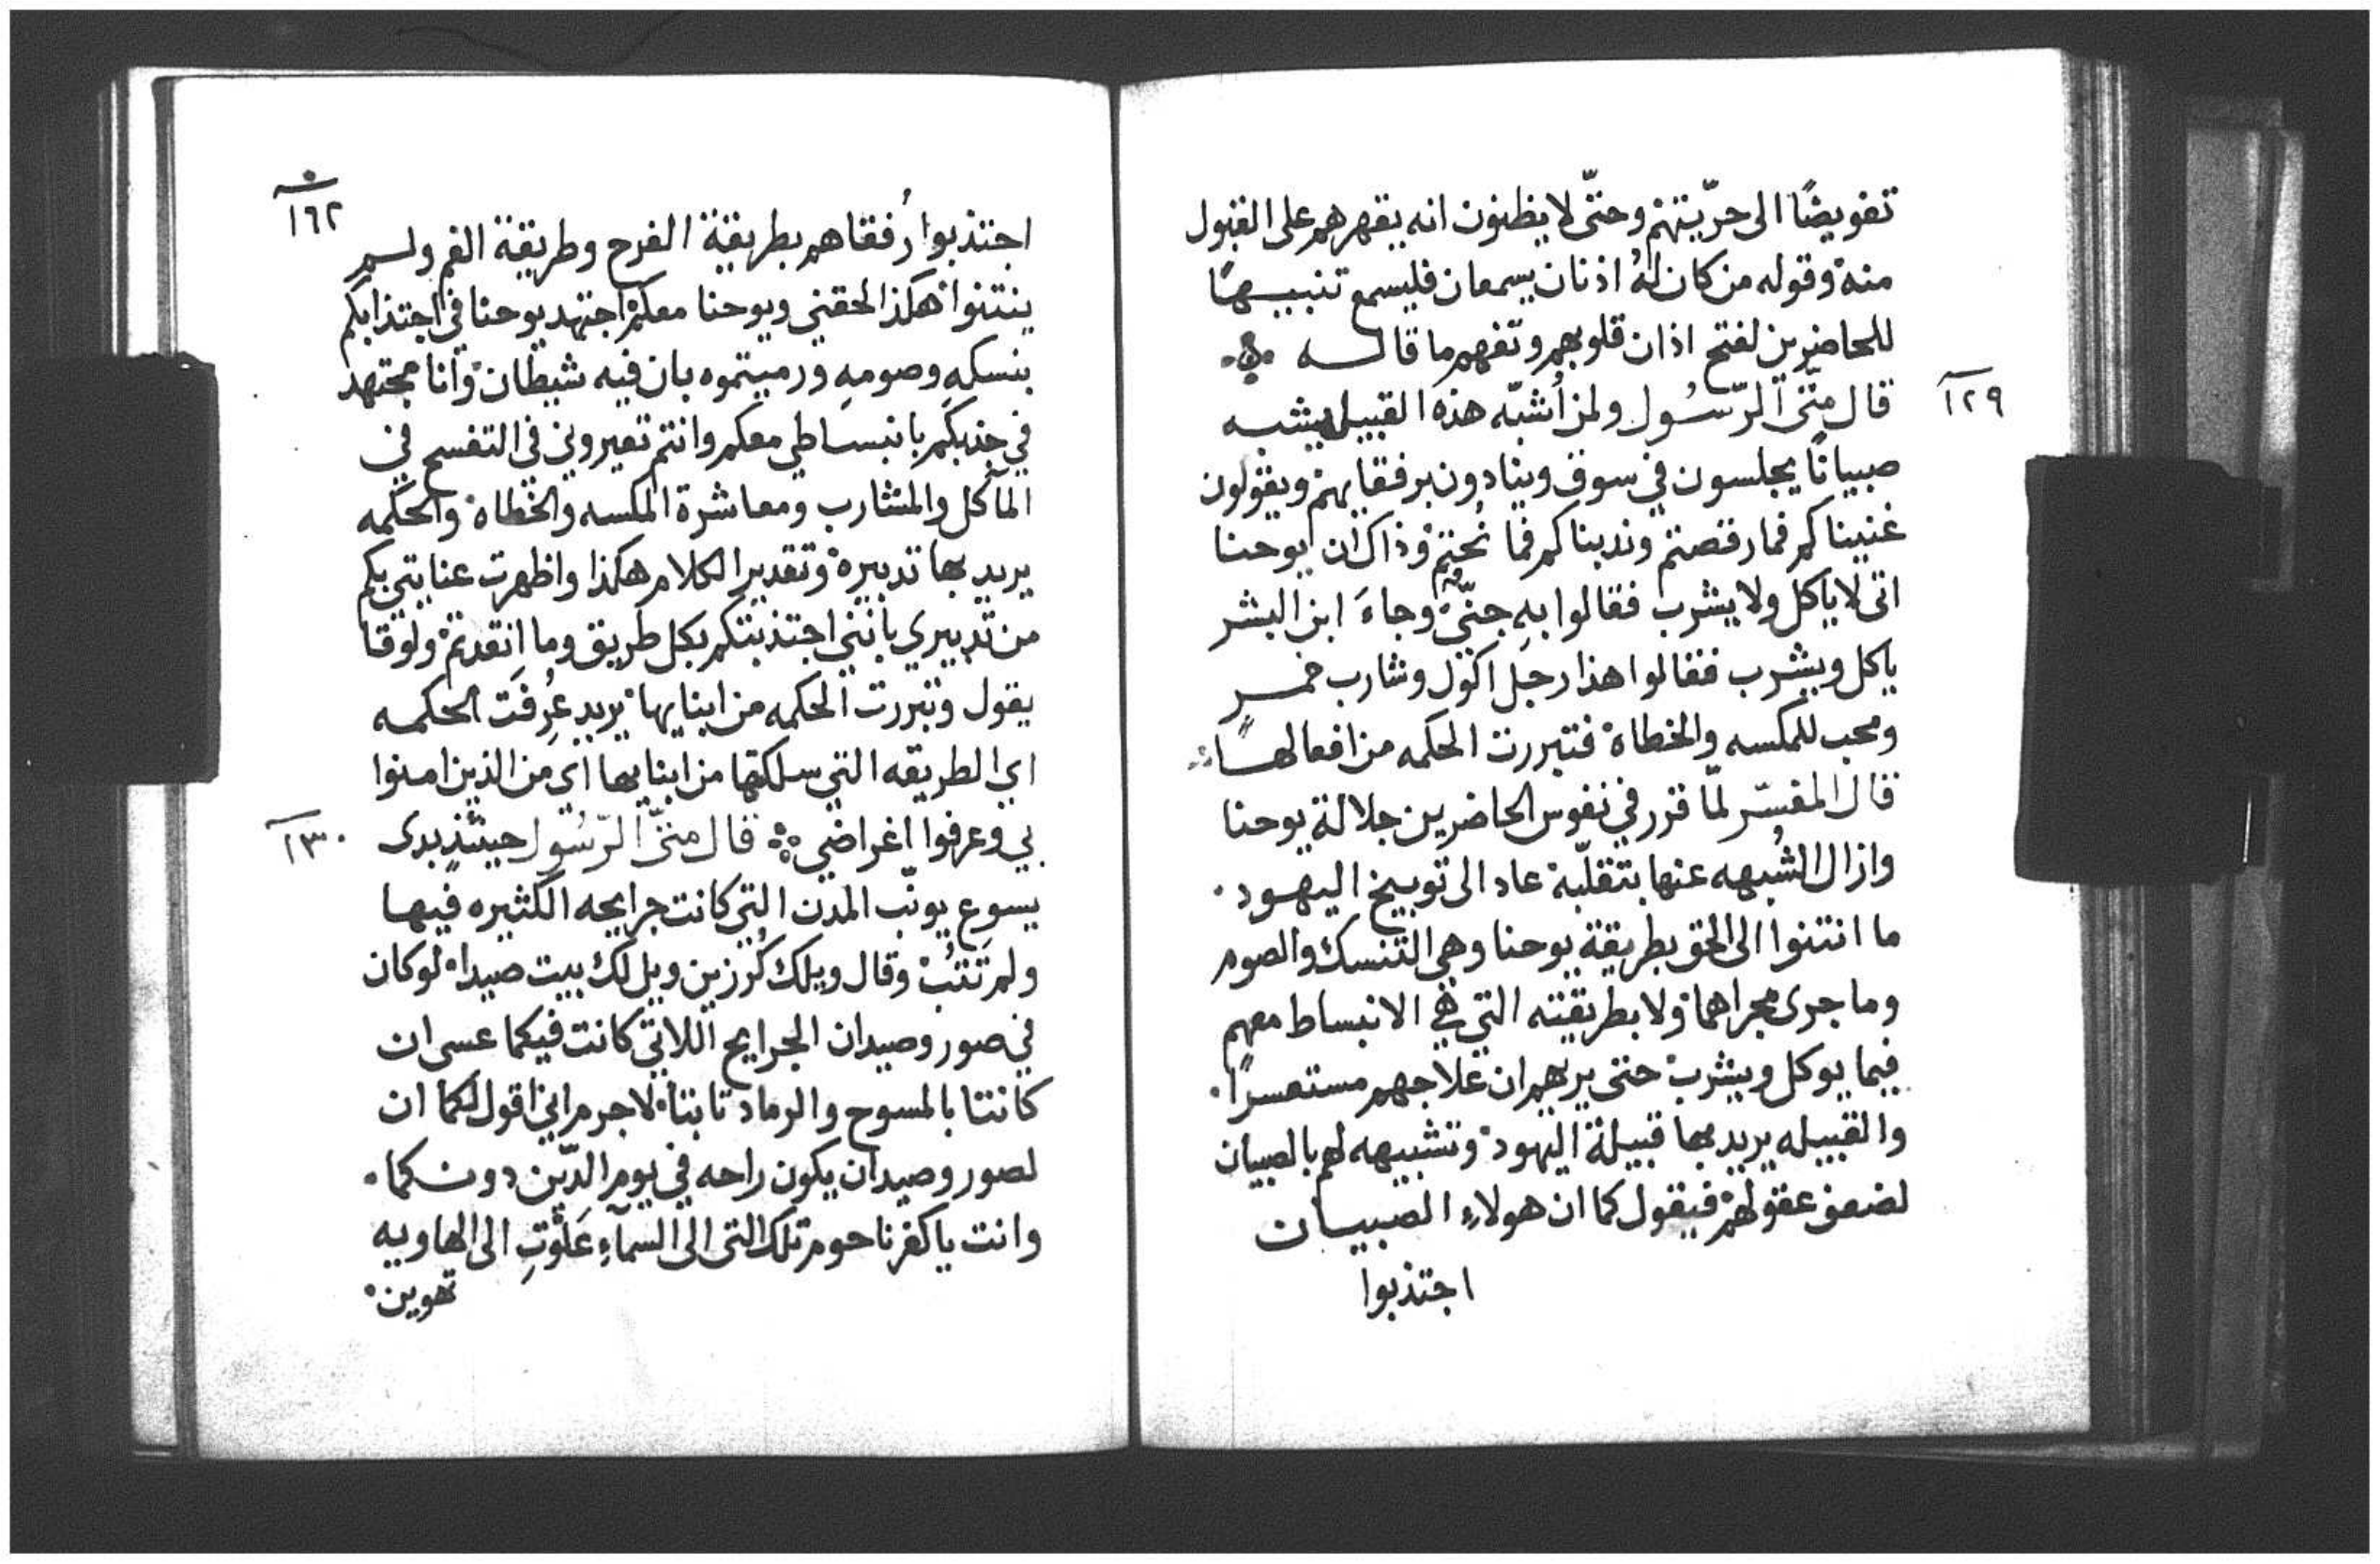 تفويضًا الى حرّيتهم وحتّى لا يظنون انه يقهرهم على القبول
منه وقوله من كان لهُ اذنان يسمعان فليسمع تنبيهًا
للحاضرين لفتح اذان قلوبهم وتفهم ما قاله
١٢٩
قال متّى الرّسُول ولمن أُشبّه هذه القبيله يشبه
صبيانًا يجلسون في سوق وينادون برفقايهم ويقولون
غنيناكم فما رقصتم وندبناكم فما نُحتم وذاك ان يوحنا
اتى لا ياكل ولا يشرب فقالوا بهِ جنّيّ وجاءَ ابن البشر
ياكل ويشرب فقالوا هذا رجل اكول وشارب خمر
ومحب للمكسه والخطاة فتبررت الحكمه من افعالها
قال المفسّر لمّا قرر في نفوس الحاضرين جلالة يوحنا
وازال الشُبهه عنها بتقلّبه عاد الى توبيخ اليهود
ما انتنوا الى الحق بطريقة يوحنا وهي التنسك والصوم
وما جرى مجراهما ولا بطريقته التي هي الانبساط معهم
فيما يوكل ويشرب حتى يريهم ان علاجهم مستعسرًا
والقبيله يريد بها قبيلة اليهود وتشبيهه لهم بالصبيان
لضعف عقولهم فيقول كما ان هولاءِ الصبيان
اجتذبوا
١٦٢
اجتذبوا رُفقاهم بطريقة الفرح وطريقة الغم ولم
ينتنوا هكذا لحقني ويوحنا معكم اجتهد يوحنا في اجتذابكم
بنسكهِ وصومهِ ورميتموه بان فيه شيطان وانا مجتهد
في جذبكم بانبساطي معكم وانتم تعيروني في التفسح في
المآكل والمشارب ومعاشرة المكسه والخطاه والحكمه
يريد بها تدبيره وتقدير الكلام هكذا واظهرت عنايتي بكم
من تدبيري بانني اجتذبتكم بكل طريق وما انقدتم ولوقا
يقول وتبررت الحكمه من ابنايها يريد عُرِفَت الحكمه
اي الطريقه التي سلكتها من ابنايها اي من الذين امنوا
بي وعرفوا اغراضي قال متّى الرّسُول حينئذٍ بدى
١٣٠
يسوع يونّب المدن التي كانت جرايحه الكثيره فيها
ولم تَتُبْ وقال ويلك كُرزين ويل لك بيت صيدا لو كان
في صور وصيدان الجرايح اللاتي كانت فيكما عسى ان
كانتا بالمسوح والرماد تابتا لا جرم اني اقول لكما ان
لصور وصيدان يكون راحه في يوم الدّين دونكما
وانت يا كفرناحوم تلك التي الى السمآءِ عَلَوْتِ الى الهاويه
تهوين